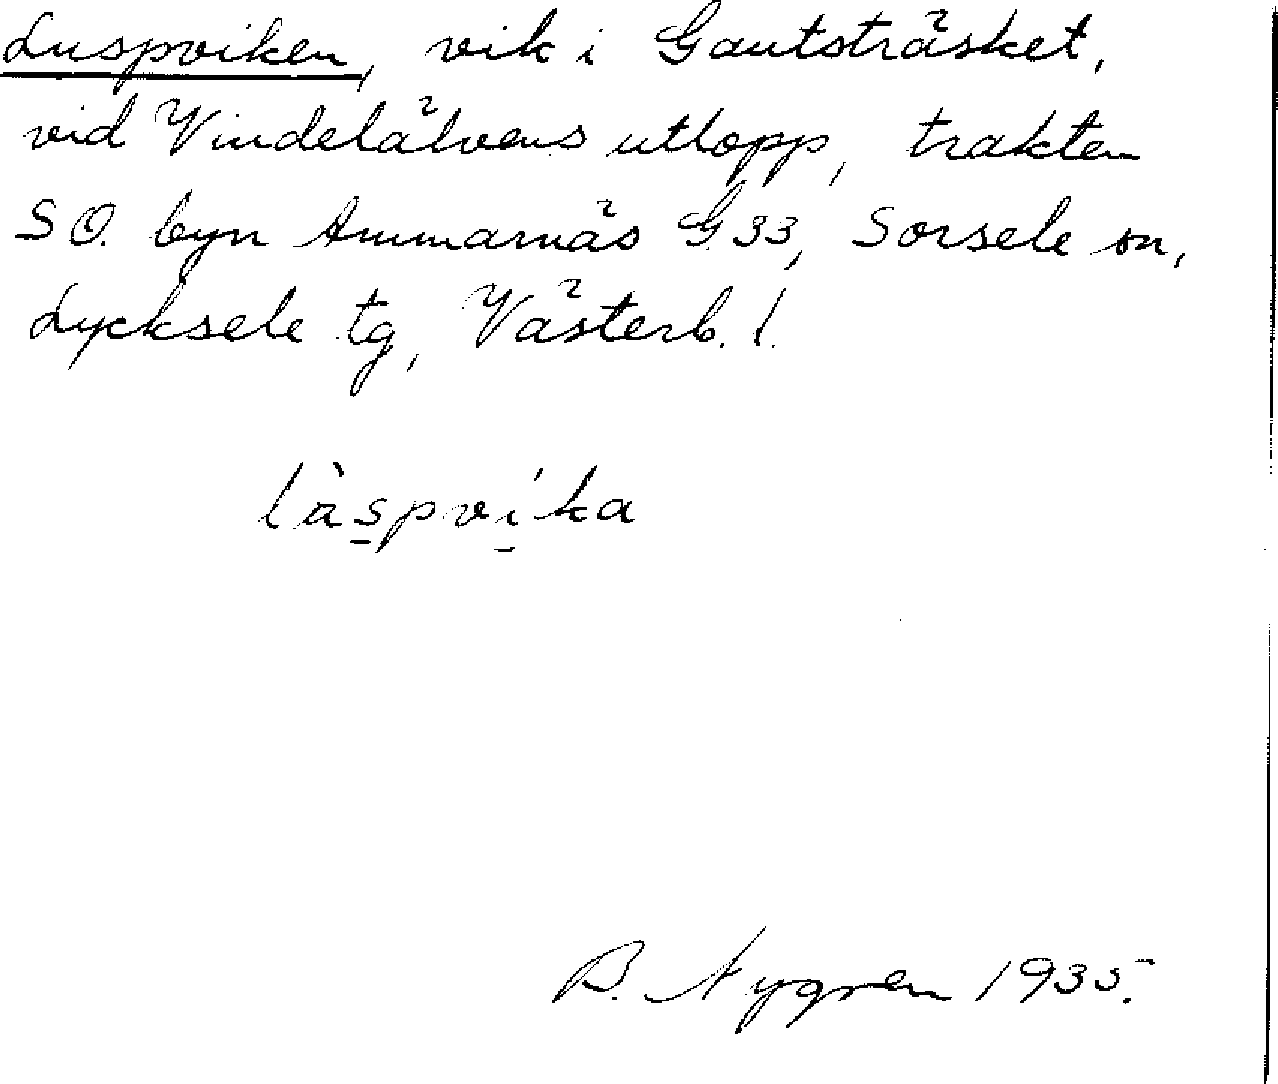 Luspviken, vik i Gautsträsket,
vid Vindelälvens utlopp, trakten
SO. byn Ammarnäs G 33, Sorsele sn,
Lycksele tg, Västerb. l.
làspvíka
B. Nygren 1935.